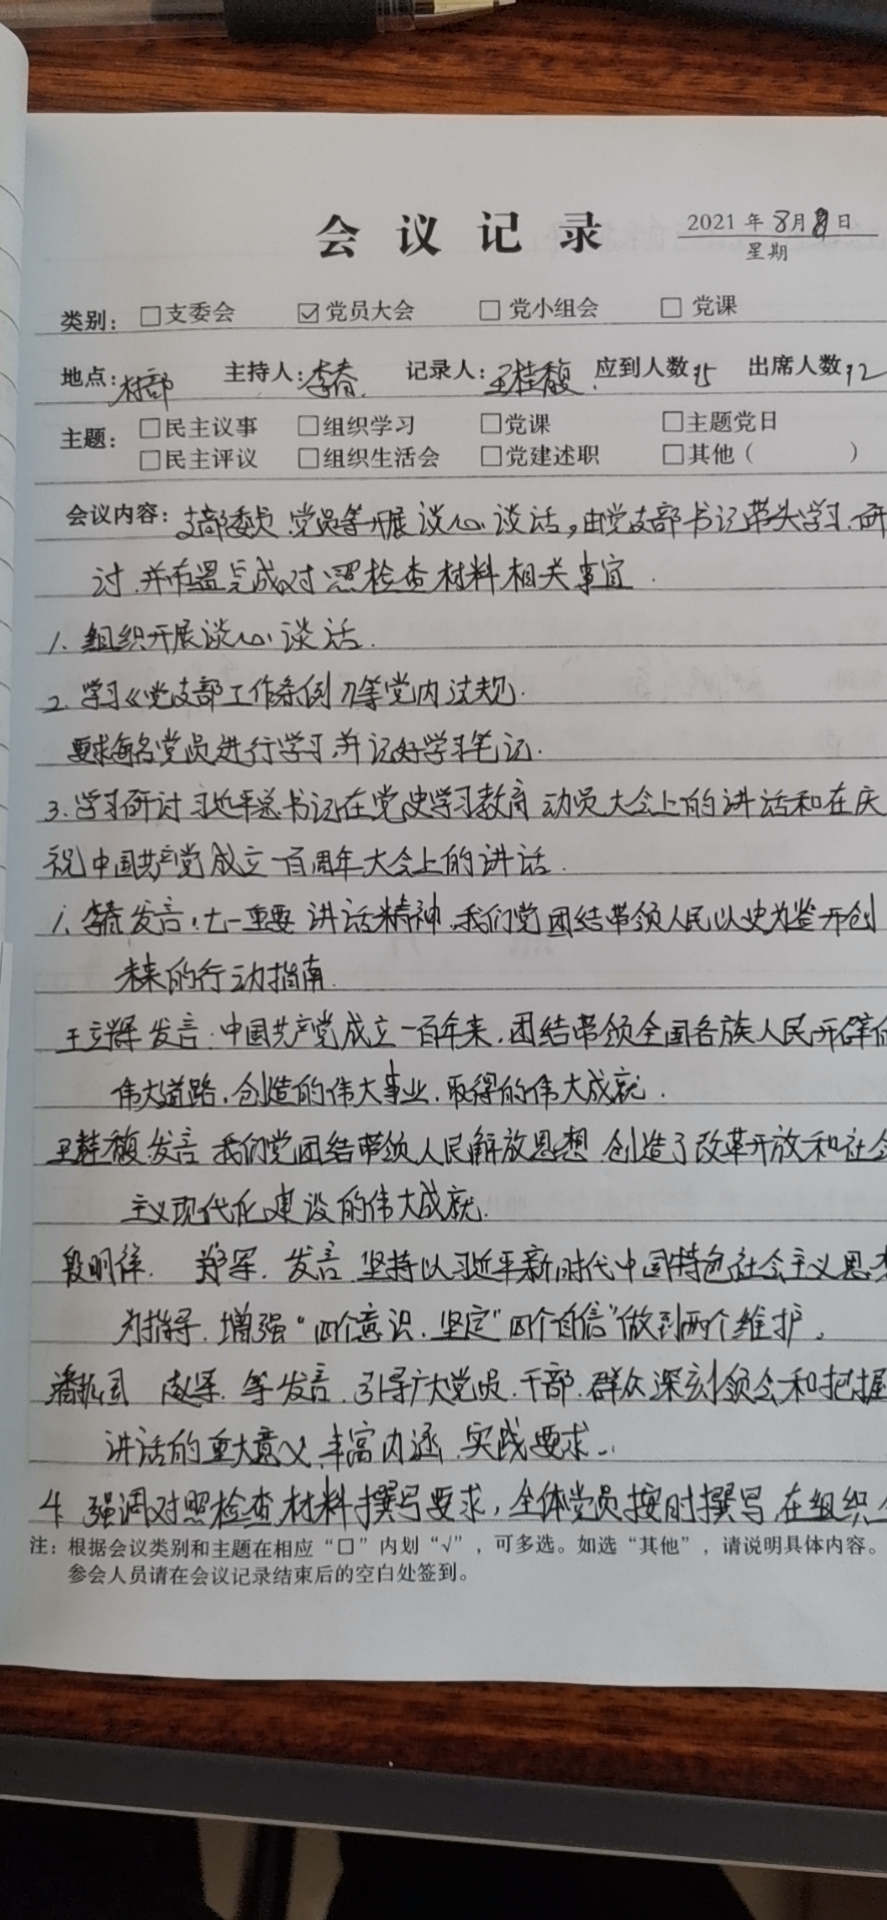 会议记录
2021年8月8日
星期
类别：□支委会 ☑党员大会 □党小组会 □党课
地点：村部 主持人：李春. 记录人：王桂馥. 应到人数：15 出席人数：12
主题：□民主议事 □组织学习 □党课 □主题党日
□民主评议 □组织生活会 □党建述职 □其他（ ）
会议内容：支部委员.党员等开展谈心谈话，由党支部书记带头学习.研
讨.并布置完成对照检查材料相关事宜.
1. 组织开展谈心谈话.
2. 学习《党支部工作条例》等党内法规.
要求每名党员进行学习并记好学习笔记.
3. 学习研讨习近平总书记在党史学习教育动员大会上的讲话和在庆
祝中国共产党成立一百周年大会上的讲话.
1. 李春发言：七一重要讲话精神.我们党团结带领人民以史为鉴开创
未来的行动指南.
王立辉发言：中国共产党成立一百年来.团结带领全国各族人民开辟的
伟大道路.创造的伟大事业.取得的伟大成就.
王桂馥发言 我们党团结带领人民解放思想 创造了改革开放和社会
主义现代化建设的伟大成就.
段明 郑军. 发言 坚持以习近平新时代中国特色社会主义思想
为指导.增强“四个意识.坚定“四个自信”做到两个维护。
潘 赵军. 等发言.引导广大党员.干部.群众深刻领会和把握
讲话的重大意义.丰富内涵.实践要求...
4. 强调对照检查材料撰写要求，全体党员按时撰写.在组织
注：根据会议类别和主题在相应“□”内划“√”，可多选。如选“其他”，请说明具体内容。
参会人员请在会议记录结束后的空白处签到。